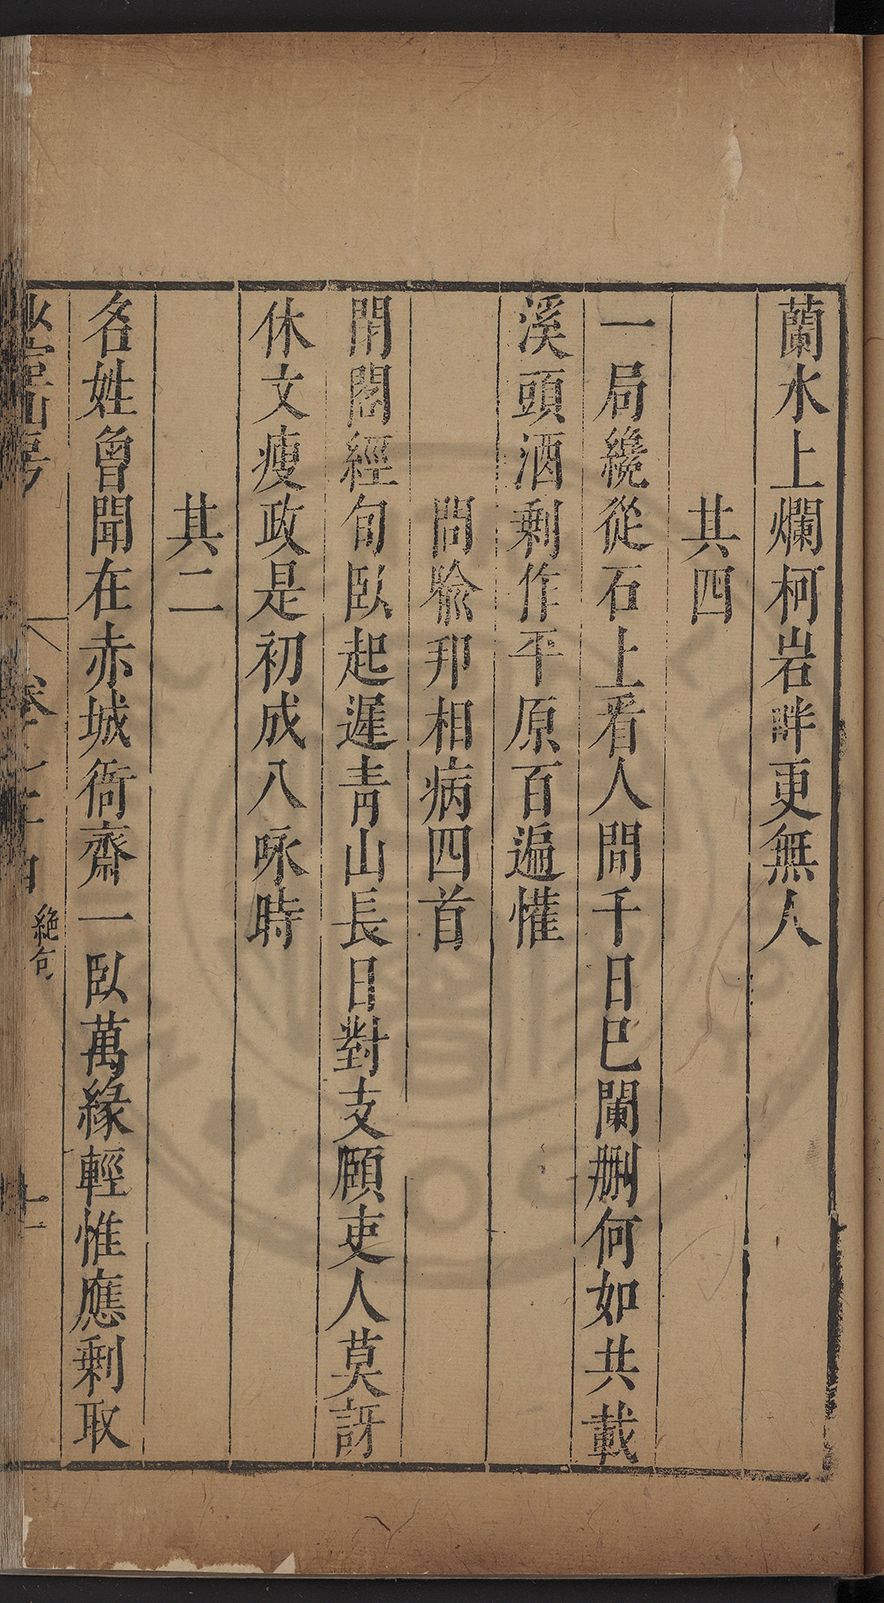 蘭水上爛柯岩畔更無人
其四
一局纔從石上看人間千日已闌刪何如共載
溪頭酒剩作平原百遍懽
問喻邦相病四首
閉閣經旬臥起遲青山長日對支頤吏人莫訝
休文瘦政是初成八咏時
其二
名姓曾聞在赤城衙齋一臥萬緣輕惟應剩取
山房
卷之
絶句